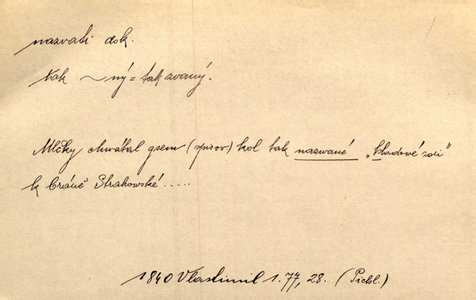 nazvati dok.
tak ~ný = tak zvaný.
Mlčky chwátal gsem (oprav.) kol tak nazwané „hladové zdi"
k bráně Strahowské.....
1840 Vlastimil 1.77, 28. (Pichl.)